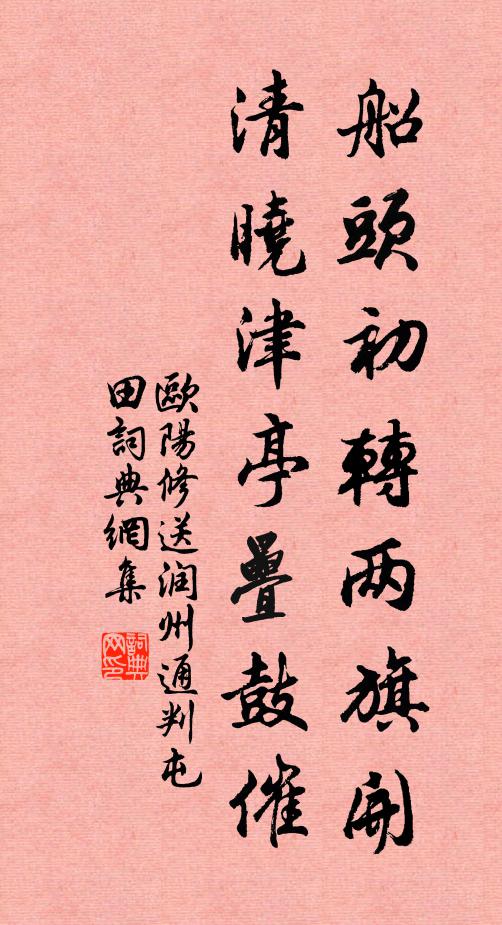 船頭初轉两旗開
清曉津亭疊鼓催
歐陽修送润州通判屯
田詞典網集
詞典网印